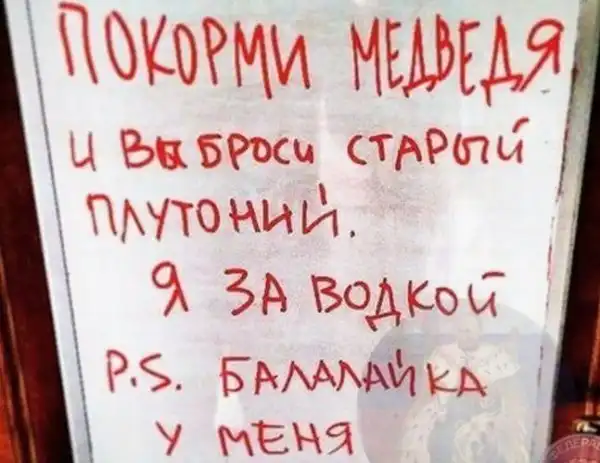 ПОКОРМИ МЕДВЕДЯ
И ВЫБРОСИ СТАРЫЙ
ПЛУТОНИЙ.
Я ЗА ВОДКОЙ
P.S. БАЛАЛАЙКА
У МЕНЯ